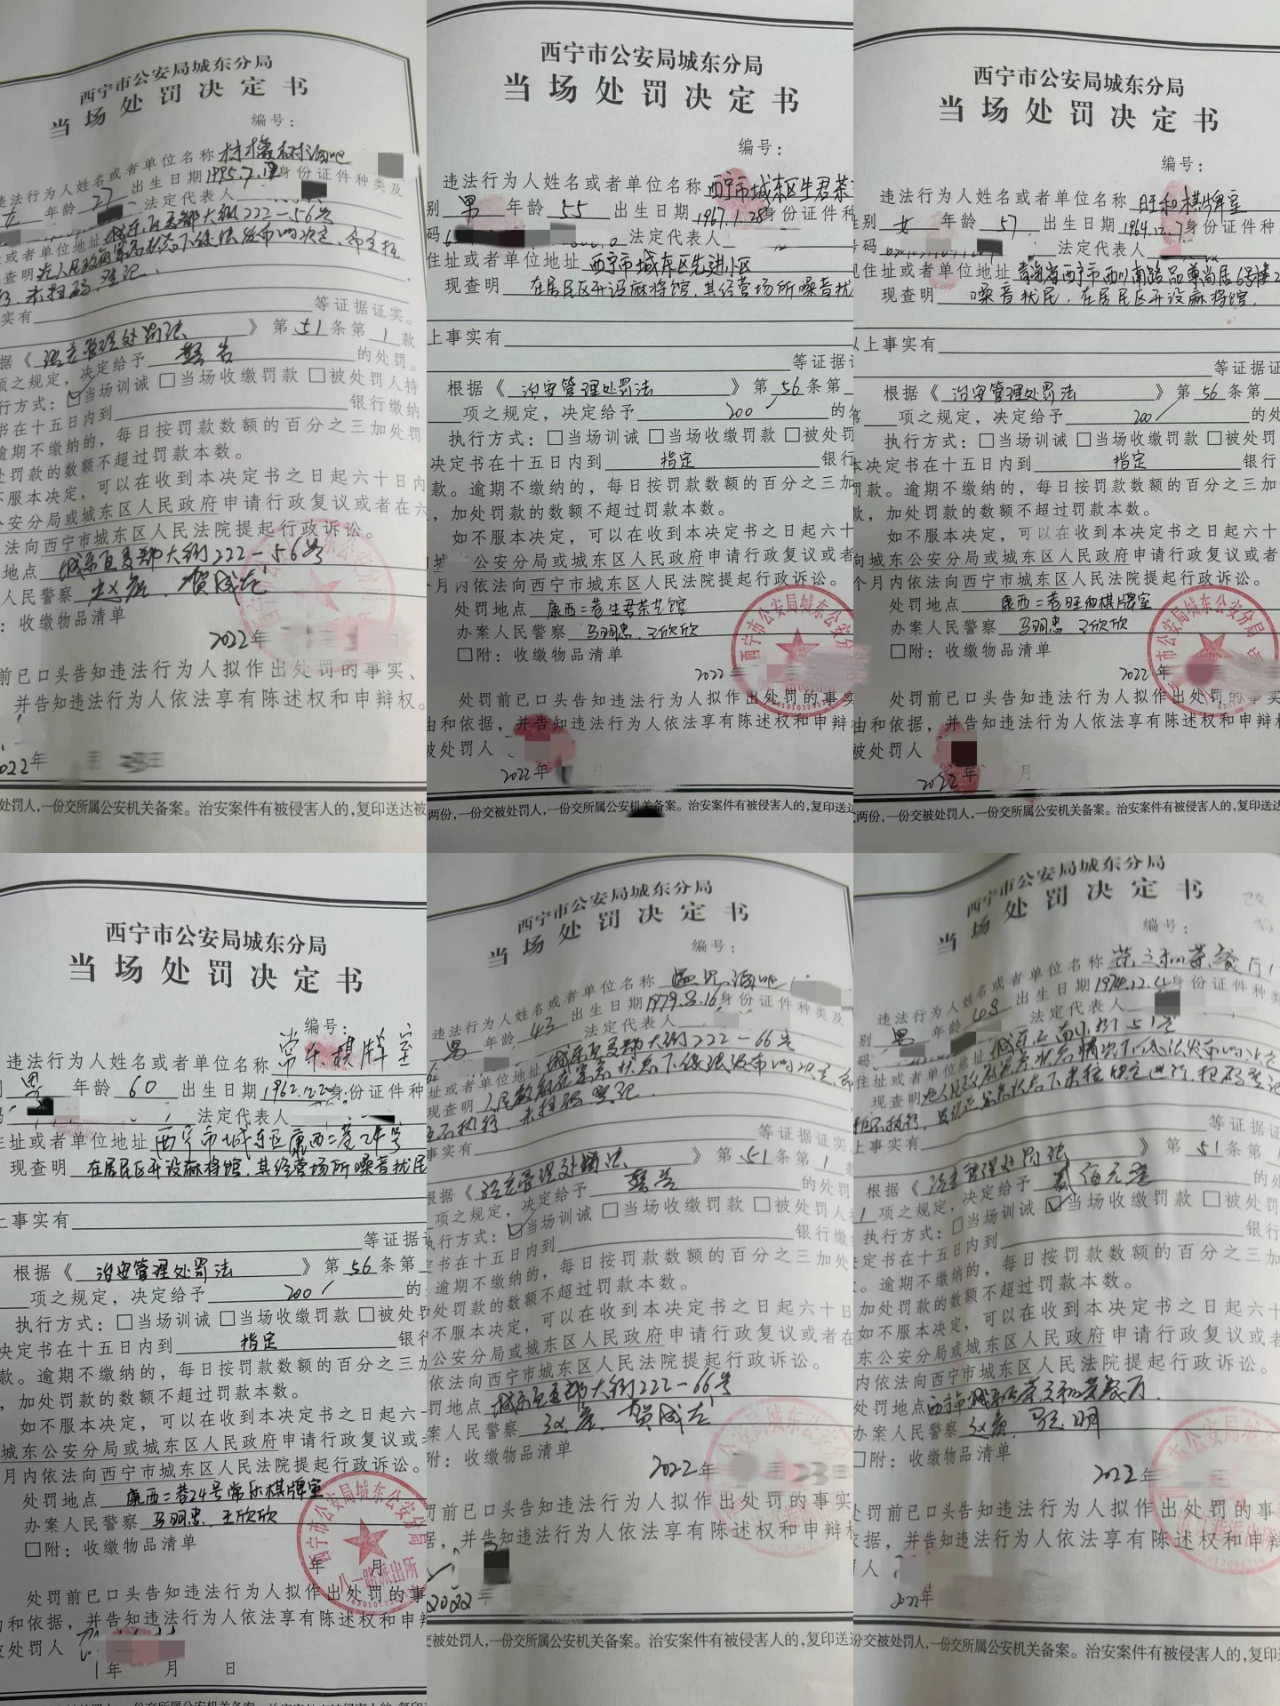 西宁市公安局城东分局
当场处罚决定书
编号：
违法行为人姓名或者单位名称
女 年龄 27 出生日期 1995.7.
身份证件种类及
法定代表人
或者单位地址 城东区夏都大街222-56号
查明
未扫码登记.
等证据证实。
据《治安管理处罚法》第51条第1款
项之规定，决定给予 警告 的处罚。
行方式：☑当场训诫 □当场收缴罚款 □被处罚人持
书在十五日内到 银行缴纳
逾期不缴纳的，每日按罚款数额的百分之三加处罚
处罚款的数额不超过罚款本数。
不服本决定，可以在收到本决定书之日起六十日内
公安分局或城东区人民政府申请行政复议或者在六
法向西宁市城东区人民法院提起行政诉讼。
地点 城东区夏都大街222-56号
人民警察
：收缴物品清单
2022年
前已口头告知违法行为人拟作出处罚的事实、
并告知违法行为人依法享有陈述权和申辩权。
2022年 月 23日
处罚人，一份交所属公安机关备案。治安案件有被侵害人的，复印送达被
西宁市公安局城东分局
当场处罚决定书
编号：
违法行为人姓名或者单位名称 西宁市城东区生君茶
别 男 年龄 55 出生日期 1967.1.28 身份证件种
码 法定代表人
住址或者单位地址 西宁市城东区先进小区
现查明 在居民区开设麻将馆，其经营场所噪音扰
上事实有
等证据证
根据《治安管理处罚法》第56条第
项之规定，决定给予 200 的
执行方式：□当场训诫 □当场收缴罚款 □被处罚
决定书在十五日内到 指定 银行
款。逾期不缴纳的，每日按罚款数额的百分之三加
，加处罚款的数额不超过罚款本数。
如不服本决定，可以在收到本决定书之日起六十
城 公安分局或城东区人民政府申请行政复议或者
个月内依法向西宁市城东区人民法院提起行政诉讼。
处罚地点 康西二巷生君茶艺馆
办案人民警察 马明忠、王欣欣
□附：收缴物品清单
2022
处罚前已口头告知违法行为人拟作出处罚的事实
由和依据，并告知违法行为人依法享有陈述权和申辩
被处罚人
2022年 月
两份，一份交被处罚人，一份交所属公安机关备案。治安案件有被侵害人的，复印送达
西宁市公安局城东分局
当场处罚决定书
编号：
违法行为人姓名或者单位名称 旺和棋牌室
性别 女 年龄 57 出生日期 1964.12.7 身份证件种
号码 法定代表人
现住址或者单位地址 青海省西宁市西川南路品尊尚居6号楼2
现查明 噪音扰民，在居民区开设麻将馆.
以上事实有
等证据证
根据《治安管理处罚法》第56条第
第 项之规定，决定给予 200 的处
执行方式：□当场训诫 □当场收缴罚款 □被处罚
本决定书在十五日内到 指定 银行
罚款。逾期不缴纳的，每日按罚款数额的百分之三加
款，加处罚款的数额不超过罚款本数。
如不服本决定，可以在收到本决定书之日起六十
向城东公安分局或城东区人民政府申请行政复议或者
个月内依法向西宁市城东区人民法院提起行政诉讼。
处罚地点 康西二巷旺和棋牌室
办案人民警察 马明忠、王欣欣
□附：收缴物品清单
2022
处罚前已口头告知违法行为人拟作出处罚的事实
由和依据，并告知违法行为人依法享有陈述权和申辩
被处罚人
2022年 月
两份，一份交被处罚人，一份交所属公安机关备案。治安案件有被侵害人的，复印送达
西宁市公安局城东分局
当场处罚决定书
编号：
违法行为人姓名或者单位名称 常乐棋牌室
男 年龄 60 出生日期 1962.12.2 身份证件种
法定代表人
住址或者单位地址 西宁市城东区康西二巷24号
现查明 在居民区开设麻将馆，其经营场所噪音扰民
上事实有
等证据
根据《治安管理处罚法》第56条第
项之规定，决定给予 200 的
执行方式：□当场训诫 □当场收缴罚款 □被处罚
决定书在十五日内到 指定 银行
款。逾期不缴纳的，每日按罚款数额的百分之三加
，加处罚款的数额不超过罚款本数。
如不服本决定，可以在收到本决定书之日起六
城东公安分局或城东区人民政府申请行政复议或
月内依法向西宁市城东区人民法院提起行政诉讼。
处罚地点 康西二巷24号常乐棋牌室
办案人民警察 马明忠、王欣欣
□附：收缴物品清单
年 月
八一路派出所
处罚前已口头告知违法行为人拟作出处罚的事
由和依据，并告知违法行为人依法享有陈述权和申辩
被处罚人
年 月 日
西宁市公安局城东分局
当场处罚决定书
编号：
违法行为人姓名或者单位名称
男 年龄 43 出生日期 1979.8.16 身份证件种类及
法定代表人
住址或者单位地址 城东区夏都大街222-66号
现查明
拒不执行，未扫码登记
事实有 等证据证实
根据《治安管理处罚法》第51条第1
项之规定，决定给予 警告 的处罚
执行方式：☑当场训诫 □当场收缴罚款 □被处罚人
定书在十五日内到 银行缴
逾期不缴纳的，每日按罚款数额的百分之三加处
加处罚款的数额不超过罚款本数。
如不服本决定，可以在收到本决定书之日起六十日
公安分局或城东区人民政府申请行政复议或者在
依法向西宁市城东区人民法院提起行政诉讼。
罚地点 城东区夏都大街222-66号
案人民警察
附：收缴物品清单
2022年 23日
罚前已口头告知违法行为人拟作出处罚的事实
据，并告知违法行为人依法享有陈述权和申辩
2022年
交被处罚人，一份交所属公安机关备案。治安案件有被侵害人的，复印送
西宁市公安局城东分局
当场处罚决定书
编号：
违法行为人姓名或者单位名称
别 男 年龄 48 出生日期 1974.12. 身份证件种类
码 法定代表人
住址或者单位地址
现查明
上事实有 等证据证
根据《治安管理处罚法》第51条第1
1 项之规定，决定给予 贰佰元整 的处
执行方式：□当场训诫 ☑当场收缴罚款 □被处罚
定书在十五日内到 银行
。逾期不缴纳的，每日按罚款数额的百分之三加
加处罚款的数额不超过罚款本数。
如不服本决定，可以在收到本决定书之日起六十
东公安分局或城东区人民政府申请行政复议或者
内依法向西宁市城东区人民法院提起行政诉讼。
处罚地点
办案人民警察
□附：收缴物品清单
2022年
处罚前已口头告知违法行为人拟作出处罚的事
依据，并告知违法行为人依法享有陈述权和申辩
人
2022年
份交被处罚人，一份交所属公安机关备案。治安案件有被侵害人的，复印送